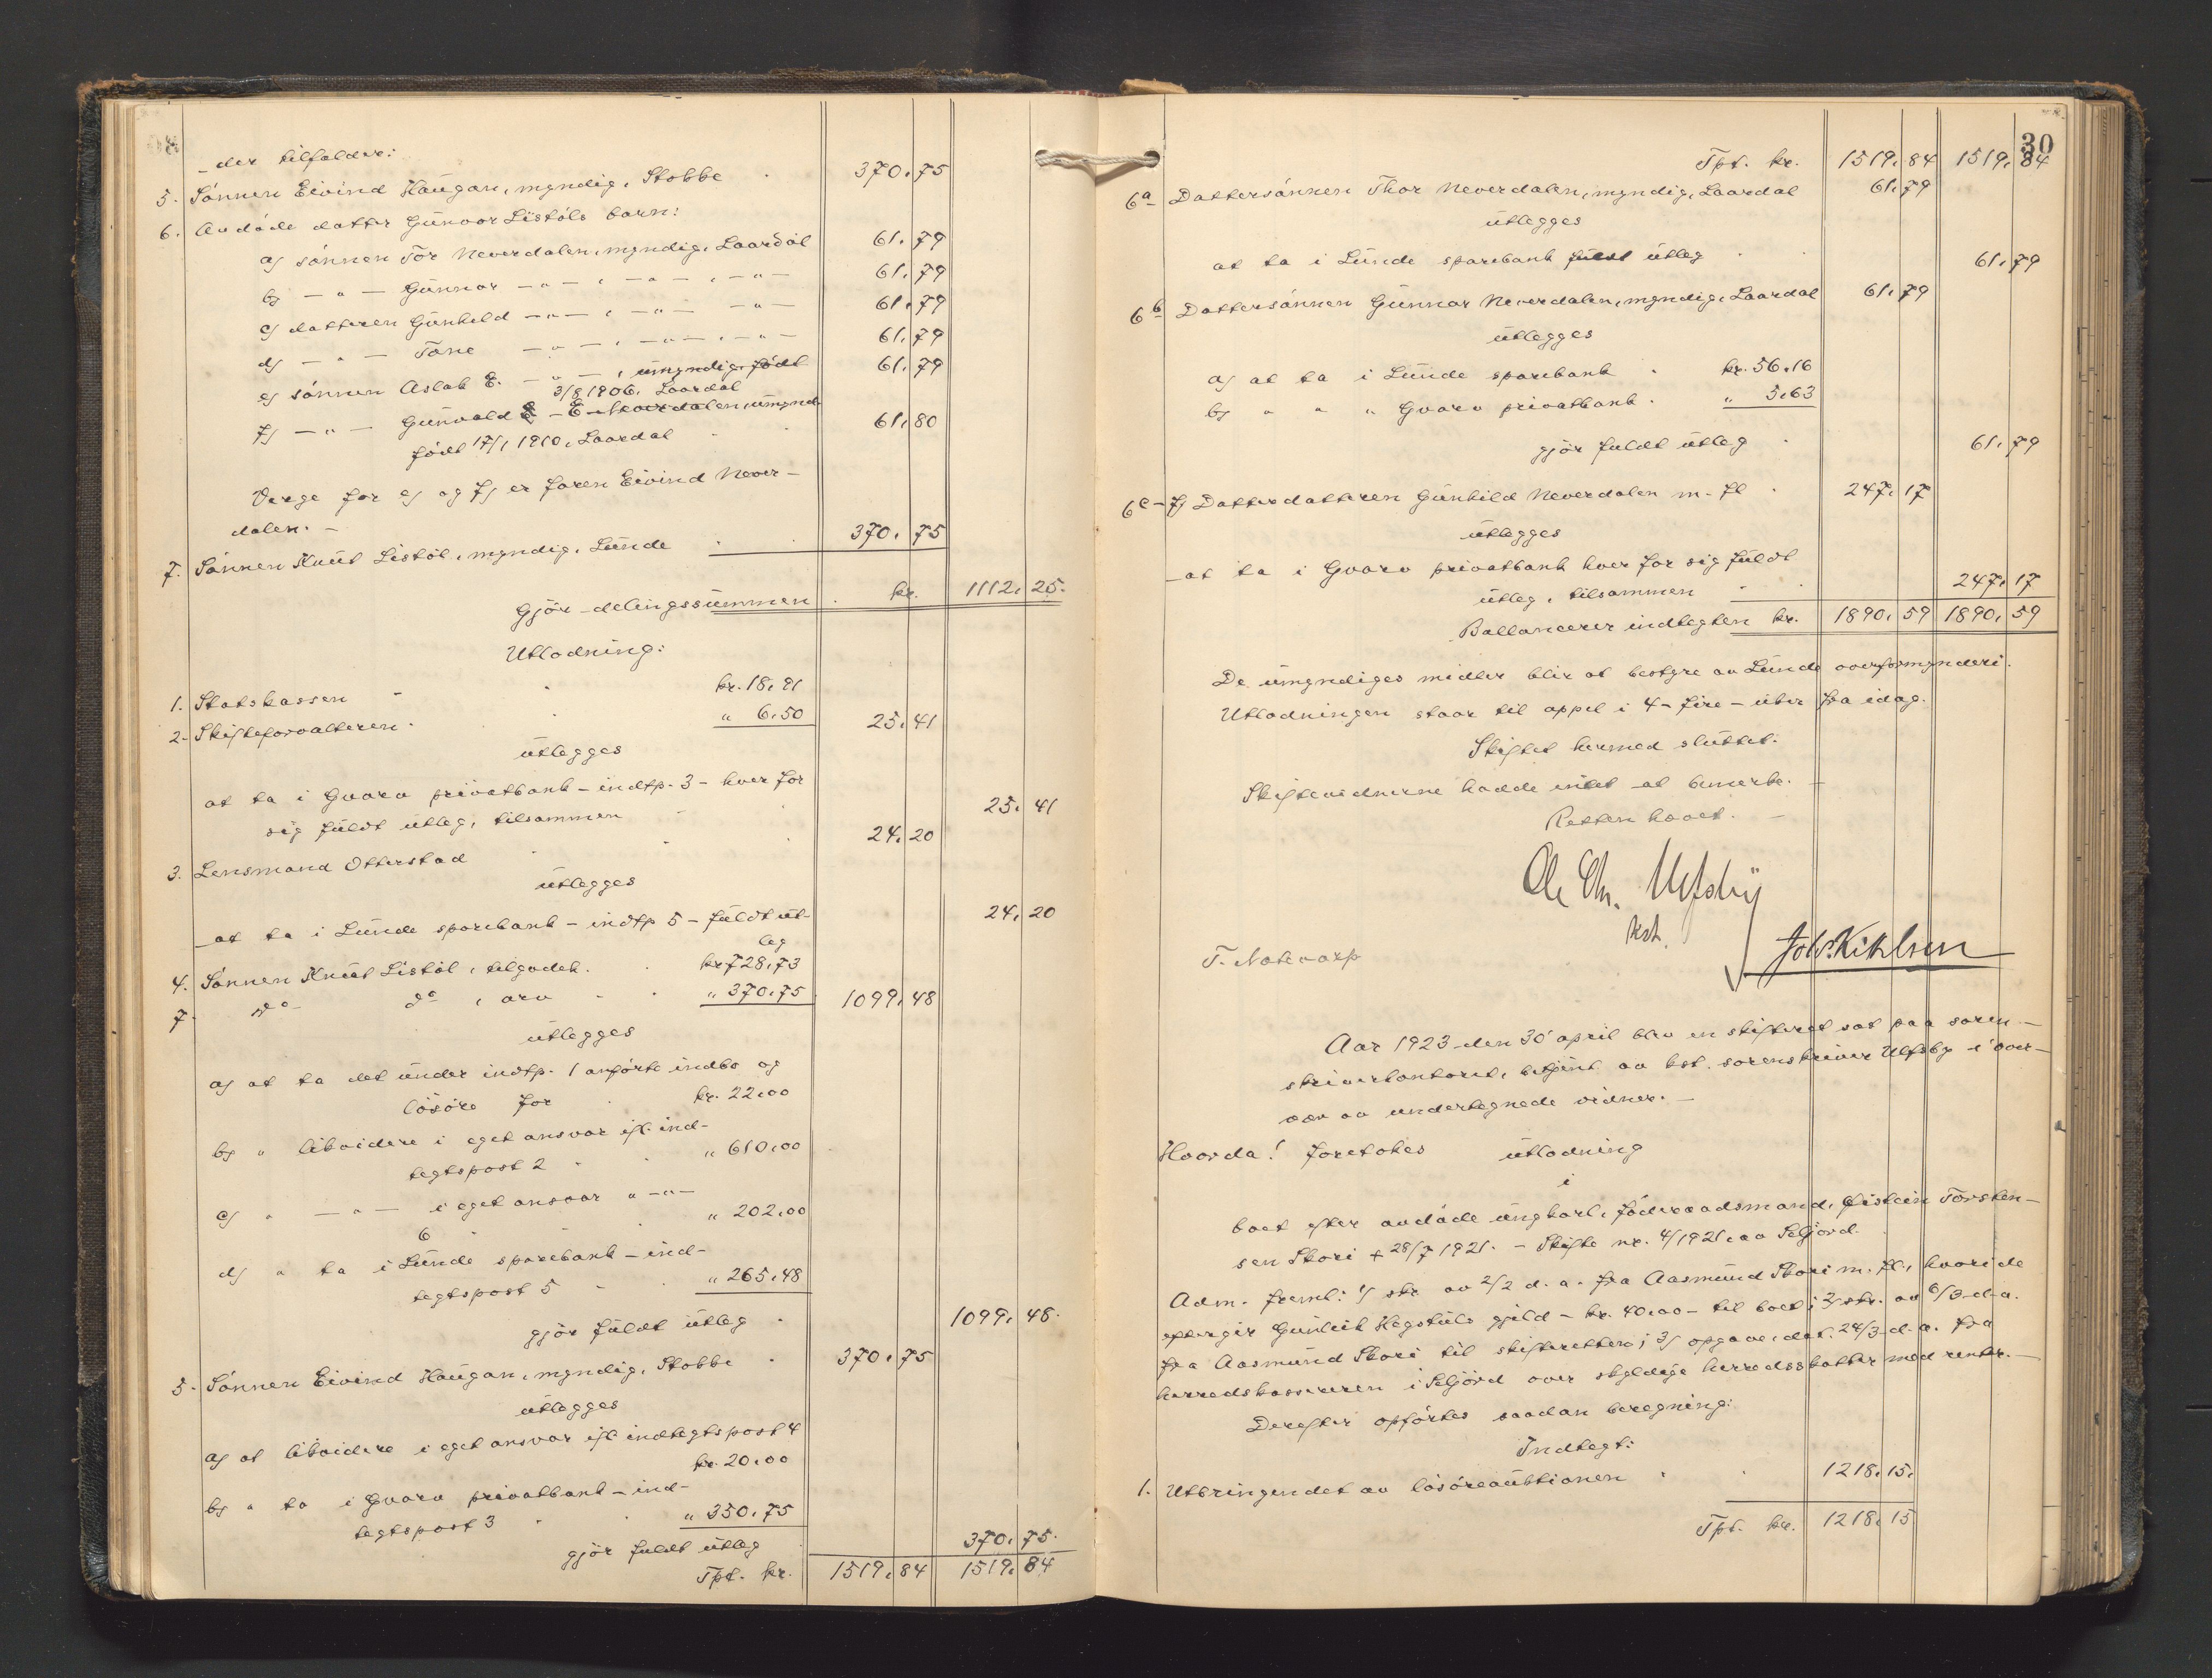 der tilfalder:
5. Sønnen Eivind Haugan, myndig, Stobbe . 370,75
6. Avdøde datter Gunvor Listøls barn:
a) sønnen Tor Neverdalen, myndig, Laardal 61,79
b) — " — Gunnar — " — , — " — , — " — 61,79
c) datteren Gunhild — " — , — " — — " — 61,79
d) — " — Tone — " — , — " — , — " — 61,79
e) sønnen Aslak E. — " — , umyndig, født 61,79
3/8 1906, Laardal
f) — " — Gunvald E. Neverdalen, umynd.
født 17/1 1910, Laardal . . 61,80
Verge for e) og f) er faren Eivind Never-
dalen. —
7. Sønnen Knut Listøl, myndig, Lunde . . 370,75
Gjør delingssummen . kr. 1112,25.
Utlodning:
1. Statskassen . . kr. 18,91
2. Skifteforvalteren . . " 6,50 25,41
utlegges
at ta i Gvarv privatbank – indtp. 3 – hver for
sig fuldt utleg, tilsammen . 25,41
3. Lensmand Otterstad . . . 24,20
utlegges
at ta i Lunde sparebank – indtp 5 – fuldt ut-
leg 24,20
4. Sønnen Knut Listøl, tilgodeh. . kr. 728,73
7. Do do , arv . . " 370,75 1099,48
utlegges
a) at ta det under indtp. 1 anførte indbo og
løsøre for . kr. 22,00
b) " likvidere i eget ansvar ifl. ind-
tegtspost 2 . . " 610,00
c) " — " — i eget ansvar " — " —
6 . . " 202,00
d) " ta i Lunde sparebank – ind-
tegtspost 5 . . " 265,48
gjør fuldt utleg . 1099,48.
5. Sønnen Eivind Haugan, myndig, Stobbe . 370,75
utlegges
a) at likvidere i eget ansvar ifl. indtegtspost 4
kr. 20,00
b) " ta i Gvarv privatbank – ind-
tegtspost 3 . . " 350,75
gjør fuldt utleg . 370,75.
Tpt. kr. 1519,84 1519,84
30
Tpt. kr. 1519,84 1519,84
6a Dattersønnen Thor Neverdalen, myndig, Laardal 61,79
utlegges
at ta i Lunde sparebank fuldt utleg . . 61,79
6b Dattersønnen Gunnar Neverdalen, myndig, Laardal 61,79
utlegges
a) at ta i Lunde sparebank . kr. 56,16
b) " " " Gvarv privatbank . " 5,63
gjør fuldt utleg . 61,79
6c – f) Datterdatteren Gunhild Neverdalen m. fl . 247,17
utlegges
at ta i Gvarv privatbank hver for sig fuldt
utleg, tilsammen . . 247,17
Ballancerer indtegten kr. 1890,59 1890,59
De umyndiges midler blir at bestyre av Lunde overformynderi.
Utlodningen staar til appel i 4 – fire – uker fra idag.
Skiftet hermed sluttet.
Skiftevidnerne hadde intet at bemerke. —
Retten hævet. —
Ole Chr. Ulfsby
kst.
T. Notevarp
Aar 1923 den 30 april blev en skifteret sat paa soren-
skriverkontoret, betjent av kst. sorenskriver Ulfsby i over-
vær av undertegnede vidner. —
Hvorda! foretokes utlodning
i
boet efter avdøde ungkarl, føderaadsmand, Øistein Torsten-
sen Skori + 28/7 1921. – Skifte nr. 4/1921 av Seljord.
Adm. freml: 1) skr av 2/2 d. a. fra Aasmund Skori m. fl., hvori de
eftergir Gunleik Hegstuls gjeld – kr. 40,00 – til boet; 2) skr. av 6/3 d. a.
fra Aasmund Skori til skifteretten; 3) opgave, dat. 24/3 d. a. fra
herredskassereren i Seljord over skyldige herredsskatter med renter. —
Derefter opførtes saadan beregning:
Indtegt:
1. Utbringendet av løsøreauktionen . . 1218,15.
Tpt. kr. 1218,15